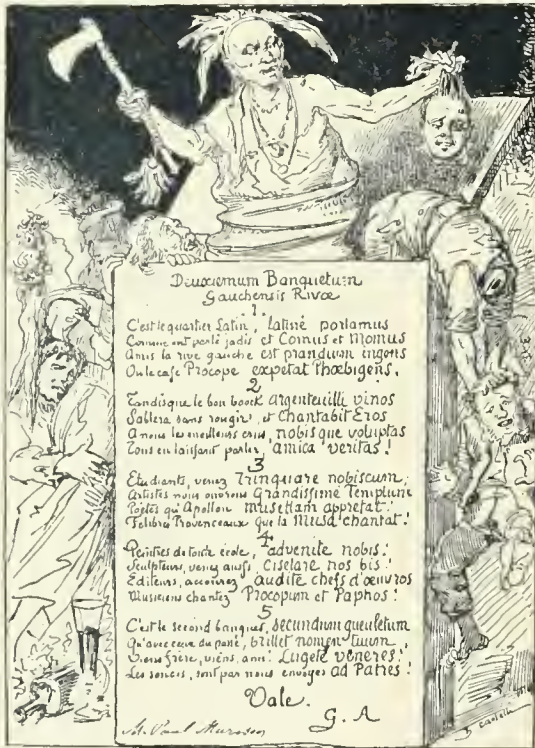 Deuxiemum Banquetum
Gauchensis Rivæ
1
C'est le quartier Latin, latinè parlamus
Comme ont parlé jadis et Comus et Momus
Amis la rive gauche est prandium ingens
Ou le cafe Procope expetat Phœbigens.
2
Tandisque le bon boock argenteuilli vinos
Sablera sans rougir, et Chantabit Eros
A nous les meilleurs crus, nobisque voluptas
Tous en laissant parler, amica veritas!
3
Etudiants, venez Trinquare nobiscum;
Artistes nous ouvrons Grandissime Templum
Poètes qu'Apollon musettam appretat!
Felibres Provenceaux que la Musa chantat!
4
Peintres de toute école, advenite nobis!
Sculpteurs, venez aussi, Ciselare nos bis!
Editeurs, accourez audite chefs d'œuvros
Musiciens chantez Procopum et Paphos!
5
C'est le second banquet, secundum gueuletum
Qu'avec ceux du passé, brillet nomen tuum,
Viens frère, viens, ami! Lugete veneres!
Les soucis, sont par nous envoyés ad Patres!
Vale.
G. A
Paul